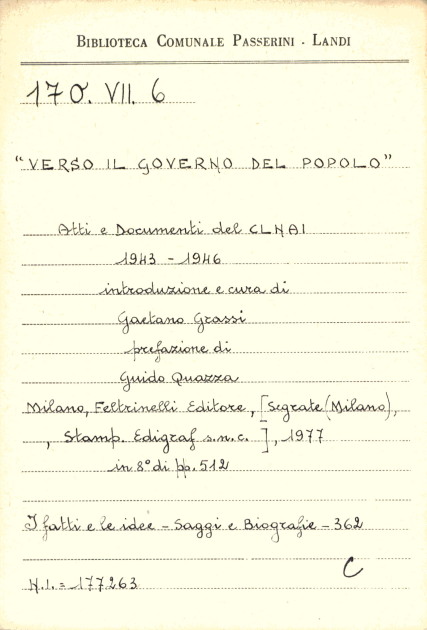 BIBLIOTECA COMUNALE PASSERINI - LANDI
170. VII. 6
"VERSO IL GOVERNO DEL POPOLO"
Atti e Documenti del CLNAI
1943 - 1946
introduzione e cura di
Gaetano Grassi
prefazione di
Guido Quazza
Milano, Feltrinelli Editore, [Segrate (Milano),
, Stamp. Edigraf s.n.c. ], 1977
in 8° di pp. 512
I fatti e le idee - Saggi e Biografie - 362
C
N.I. = 177263